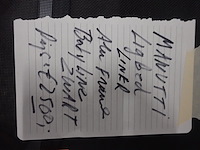 MANUTTI
Hybrid
LINER
Alu Frame
Body Type
ZWART
Prijs € 2500.-